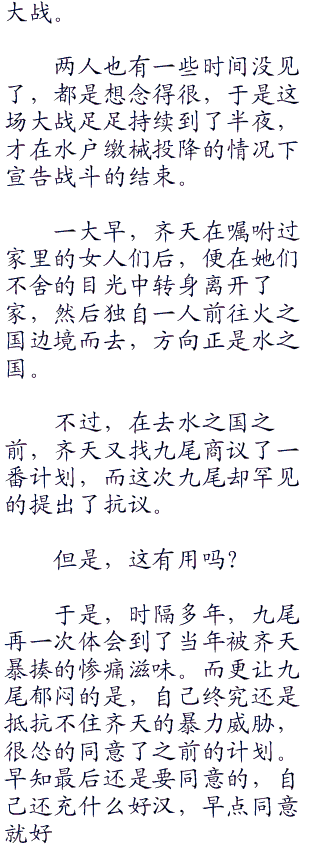 大战。
两人也有一些时间没见
了，都是想念得很，于是这
场大战足足持续到了半夜，
才在水户缴械投降的情况下
宣告战斗的结束。
一大早，齐天在嘱咐过
家里的女人们后，便在她们
不舍的目光中转身离开了
家，然后独自一人前往火之
国边境而去，方向正是水之
国。
不过，在去水之国之
前，齐天又找九尾商议了一
番计划，而这次九尾却罕见
的提出了抗议。
但是，这有用吗？
于是，时隔多年，九尾
再一次体会到了当年被齐天
暴揍的惨痛滋味。而更让九
尾郁闷的是，自己终究还是
抵抗不住齐天的暴力威胁，
很怂的同意了之前的计划。
早知最后还是要同意的，自
己还充什么好汉，早点同意
就好